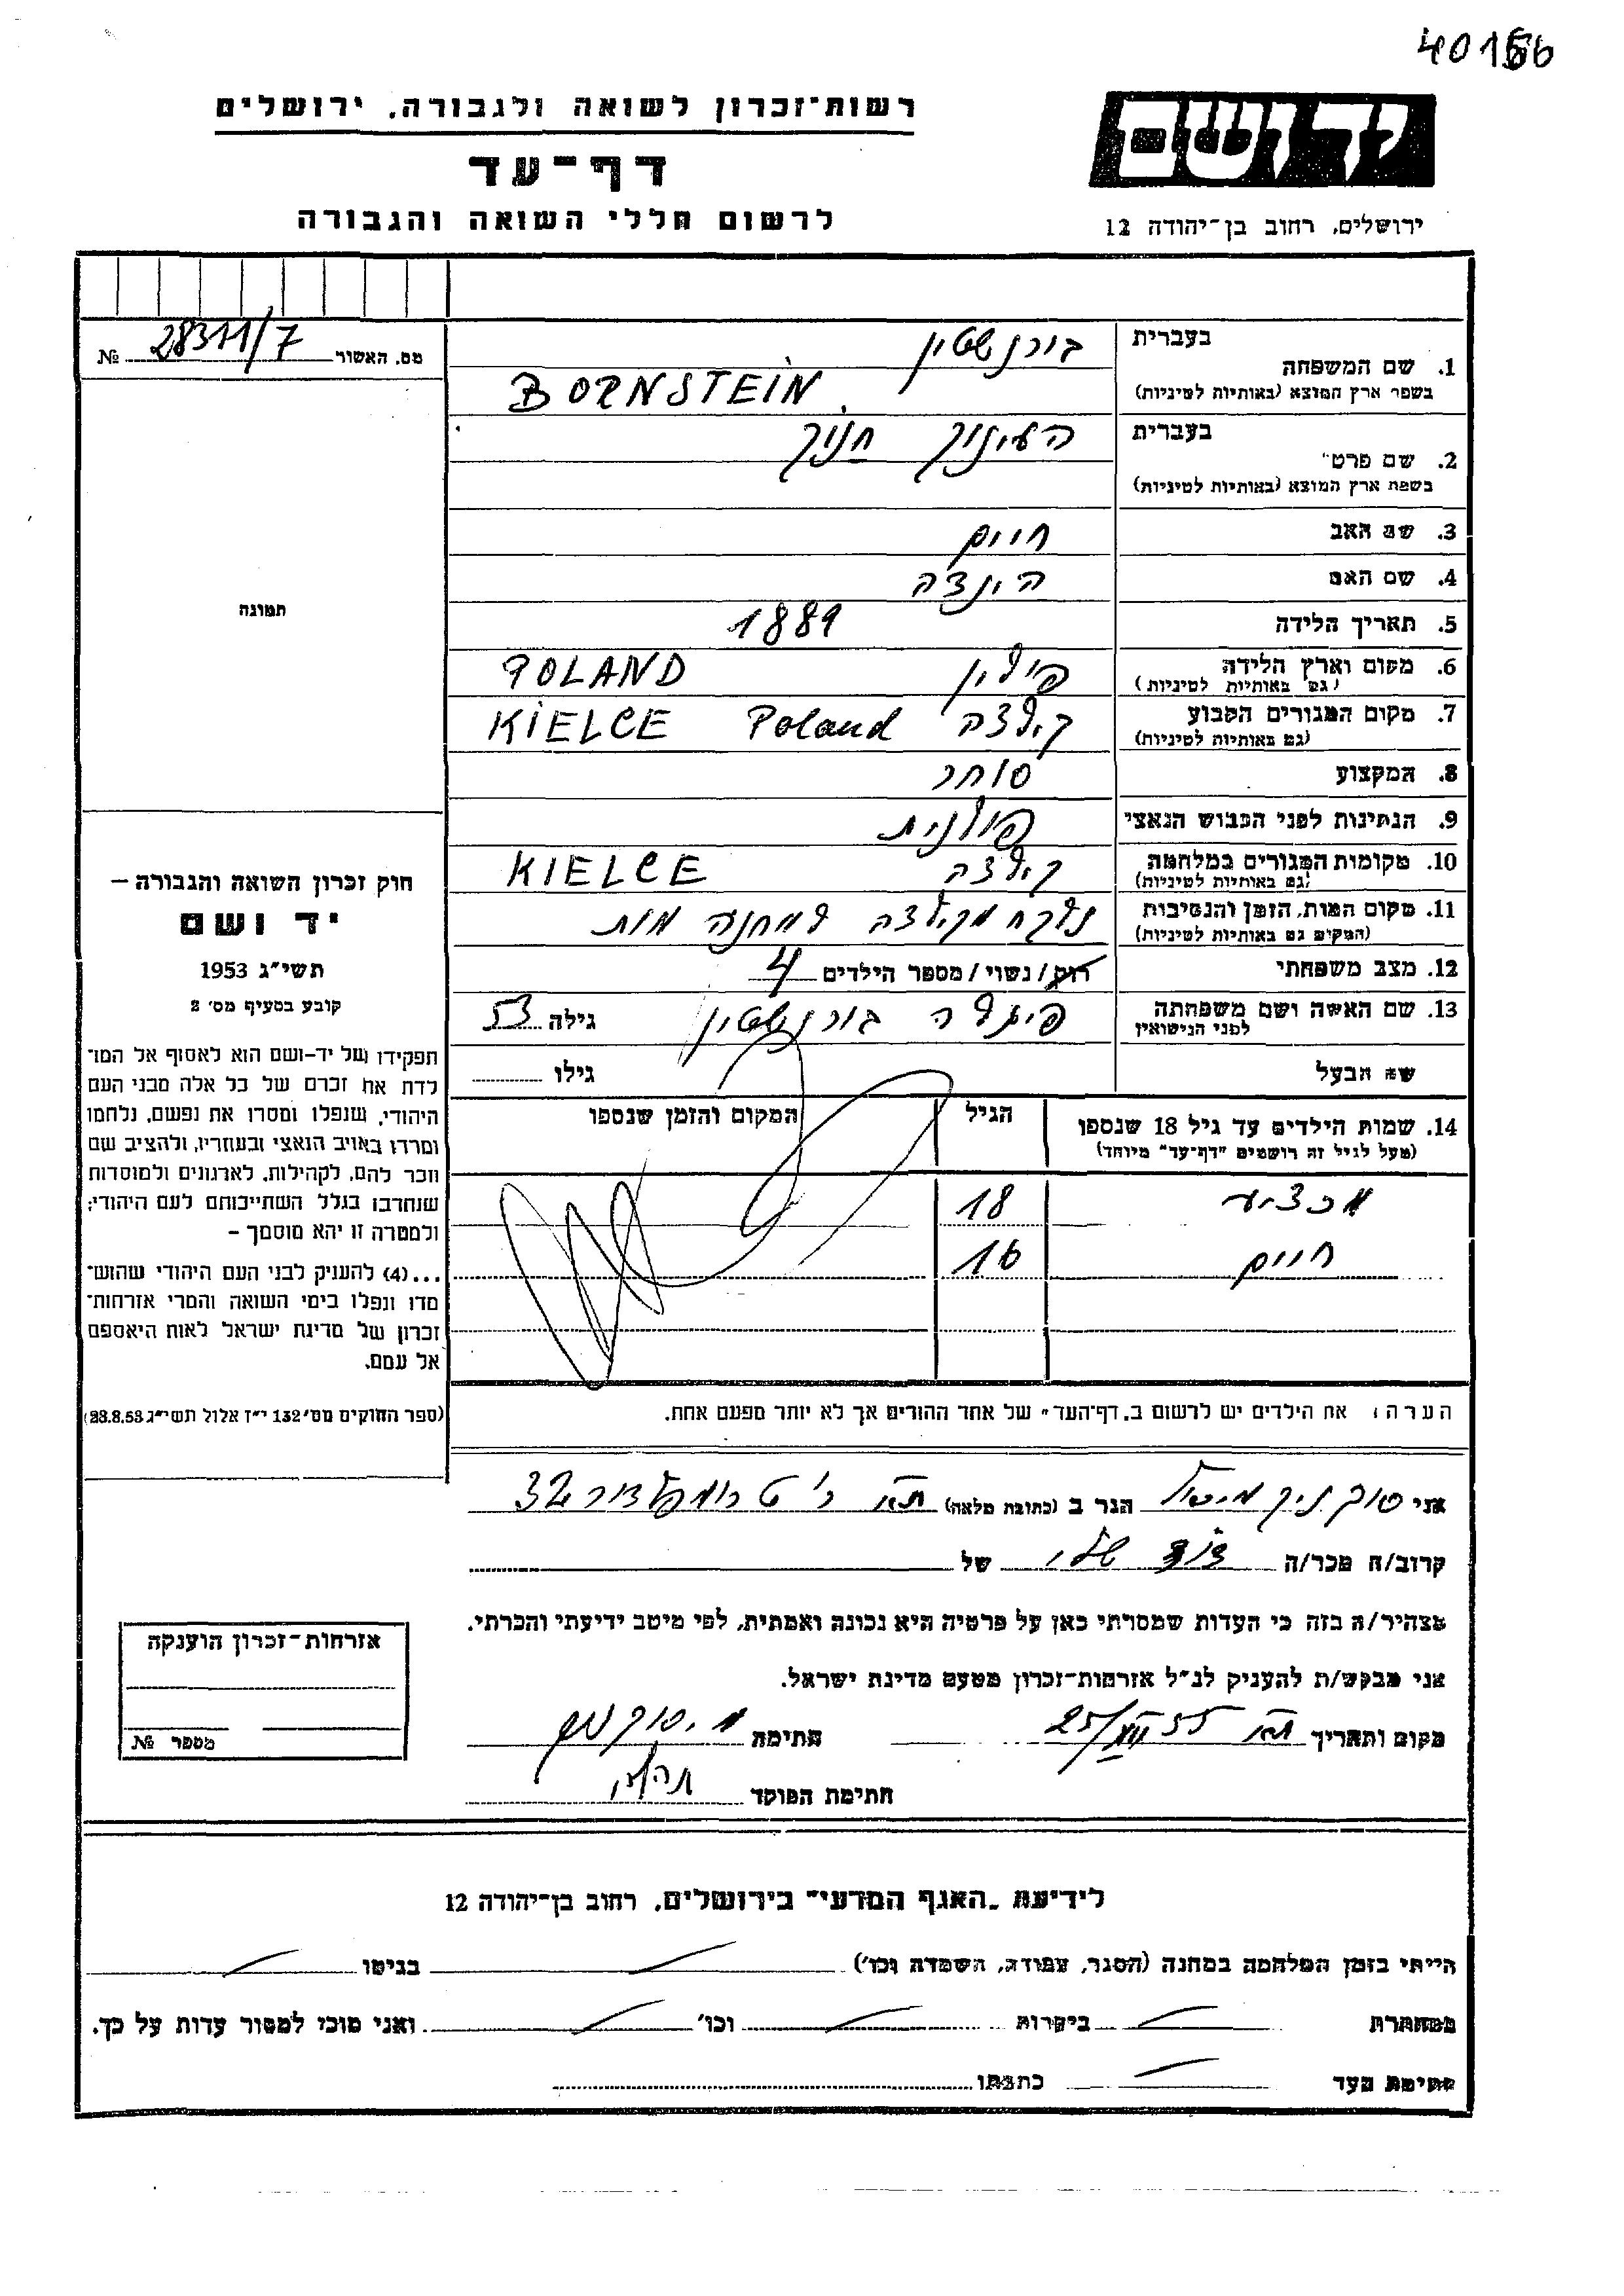 40166
רשות-זכרון לשואה ולגבורה, ירושלים
דף-עד
לרשום חללי השואה והגבורה
יד ושם
ירושלים, רחוב בן-יהודה 12
מס. האשור 28311/7 №
תמונה
חוק זכרון השואה והגבורה –
יד ושם
תשי"ג 1953
קובע בסעיף מס' 2
תפקידו של יד-ושם הוא לאסוף אל המו-
לדת את זכרם של כל אלה מבני העם
היהודי, שנפלו ומסרו את נפשם, נלחמו
ומרדו באויב הנאצי ובעוזריו, ולהציב שם
וזכר להם, לקהילות, לארגונים ולמוסדות
שנחרבו בגלל השתייכותם לעם היהודי;
ולמטרה זו יהא מוסמך –
...(4) להעניק לבני העם היהודי שהוש-
מדו ונפלו בימי השואה והמרי אזרחות-
זכרון של מדינת ישראל לאות היאספם
אל עמם.
(ספר החוקים מס' 132 י"ז אלול תשי"ג 28.8.53)
בעברית בורנשטיין
1. שם המשפחה
בשפת ארץ המוצא (באותיות לטיניות) BORNSTEIN
בעברית העינוך חנוך
2. שם פרטי
בשפת ארץ המוצא (באותיות לטיניות)
3. שם האב חיים
4. שם האם הינצה
5. תאריך הלידה 1889
6. מקום וארץ הלידה פולין POLAND
(גם באותיות לטיניות)
7. מקום המגורים הקבוע קילצה Poland KIELCE
(גם באותיות לטיניות)
8. המקצוע סוחר
9. הנתינות לפני הכבוש הנאצי פולנית
10. מקומות המגורים במלחמה קילצה KIELCE
(גם באותיות לטיניות)
11. מקום המות, הזמן והנסיבות נלקח מקילצה למחנה מות
(המקום גם באותיות לטיניות)
12. מצב משפחתי רווק/נשוי/מספר הילדים 4
13. שם האשה ושם משפחתה בורנשטיין גילה 53
לפני הנישואין
שם הבעל גילו
14. שמות הילדים עד גיל 18 שנספו הגיל המקום והזמן שנספו
(מעל לגיל זה רושמים "דף-עד" מיוחד)
18
חיים 16
הערה: את הילדים יש לרשום ב"דף-העד" של אחד ההורים אך לא יותר מפעם אחת.
אני הגר ב (כתובת מלאה) תא 32
קרוב/ה מכר/ה של
מצהיר/ה בזה כי העדות שמסרתי כאן על פרטיה היא נכונה ואמתית, לפי מיטב ידיעתי והכרתי.
אני מבקש/ת להעניק לנ"ל אזרחות-זכרון מטעם מדינת ישראל.
מקום ותאריך תא 25/VII 55 חתימה
חתימת הפוקד
אזרחות-זכרון הוענקה
מספר №
לידיעת "האגף המדעי" בירושלים, רחוב בן-יהודה 12
הייתי בזמן המלחמה במחנה (הסגר, עבודה, השמדה וכו') בגיטו
במחתרת ביערות וכו' ואני מוכן למסור עדות על כך.
חתימת העד כתבתו